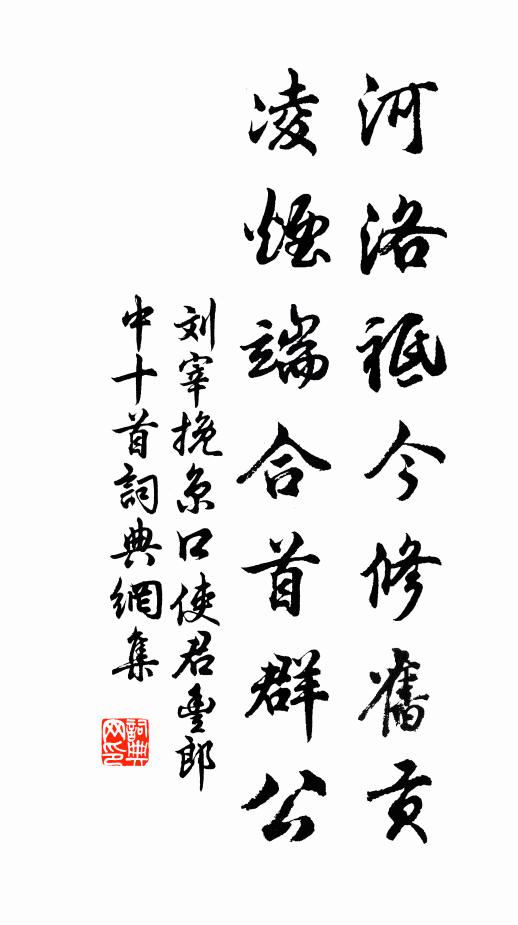 河洛祗今修旧贡
凌烟端合首群公
刘宰挽京口使君丰郎
中十首詞典網集
詞典网印